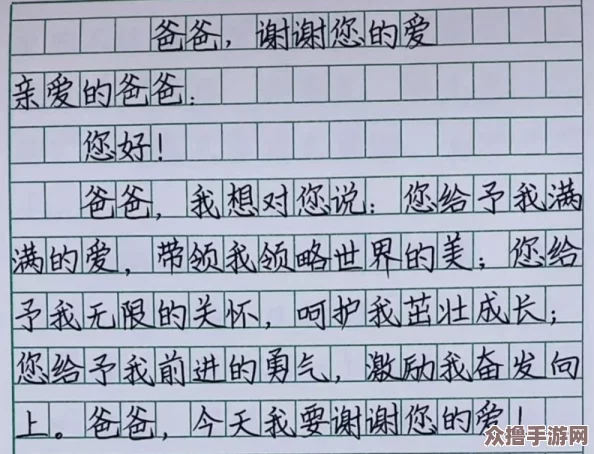 爸爸，谢谢您的爱
亲爱的爸爸：
您好！
爸爸，我想对您说：您给予我满
满的爱，带领我领略世界的美；您给
予我无限的关怀，呵护我茁壮成长；
您给予我前进的勇气，激励我奋发向
上。爸爸，今天我要谢谢您的爱！
众撸手游网